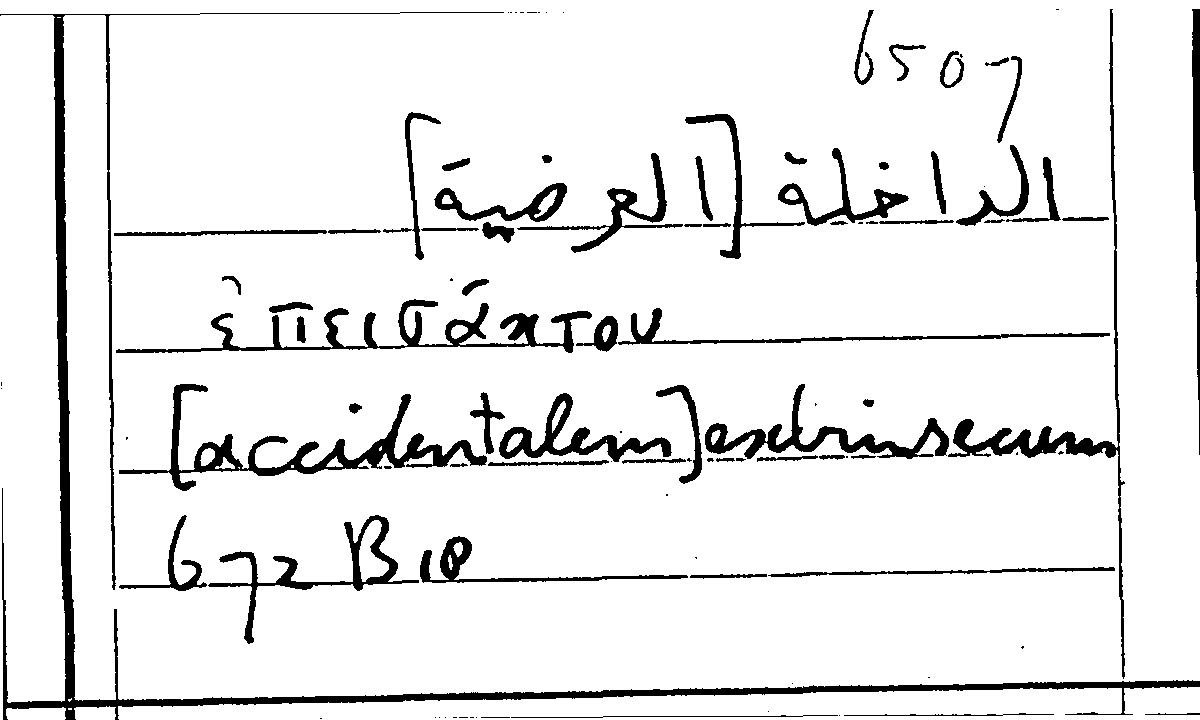 6507
الداخلة [العرضية]
ἐπεισάκτου
[accidentalem] extrinsecum
672 B 18